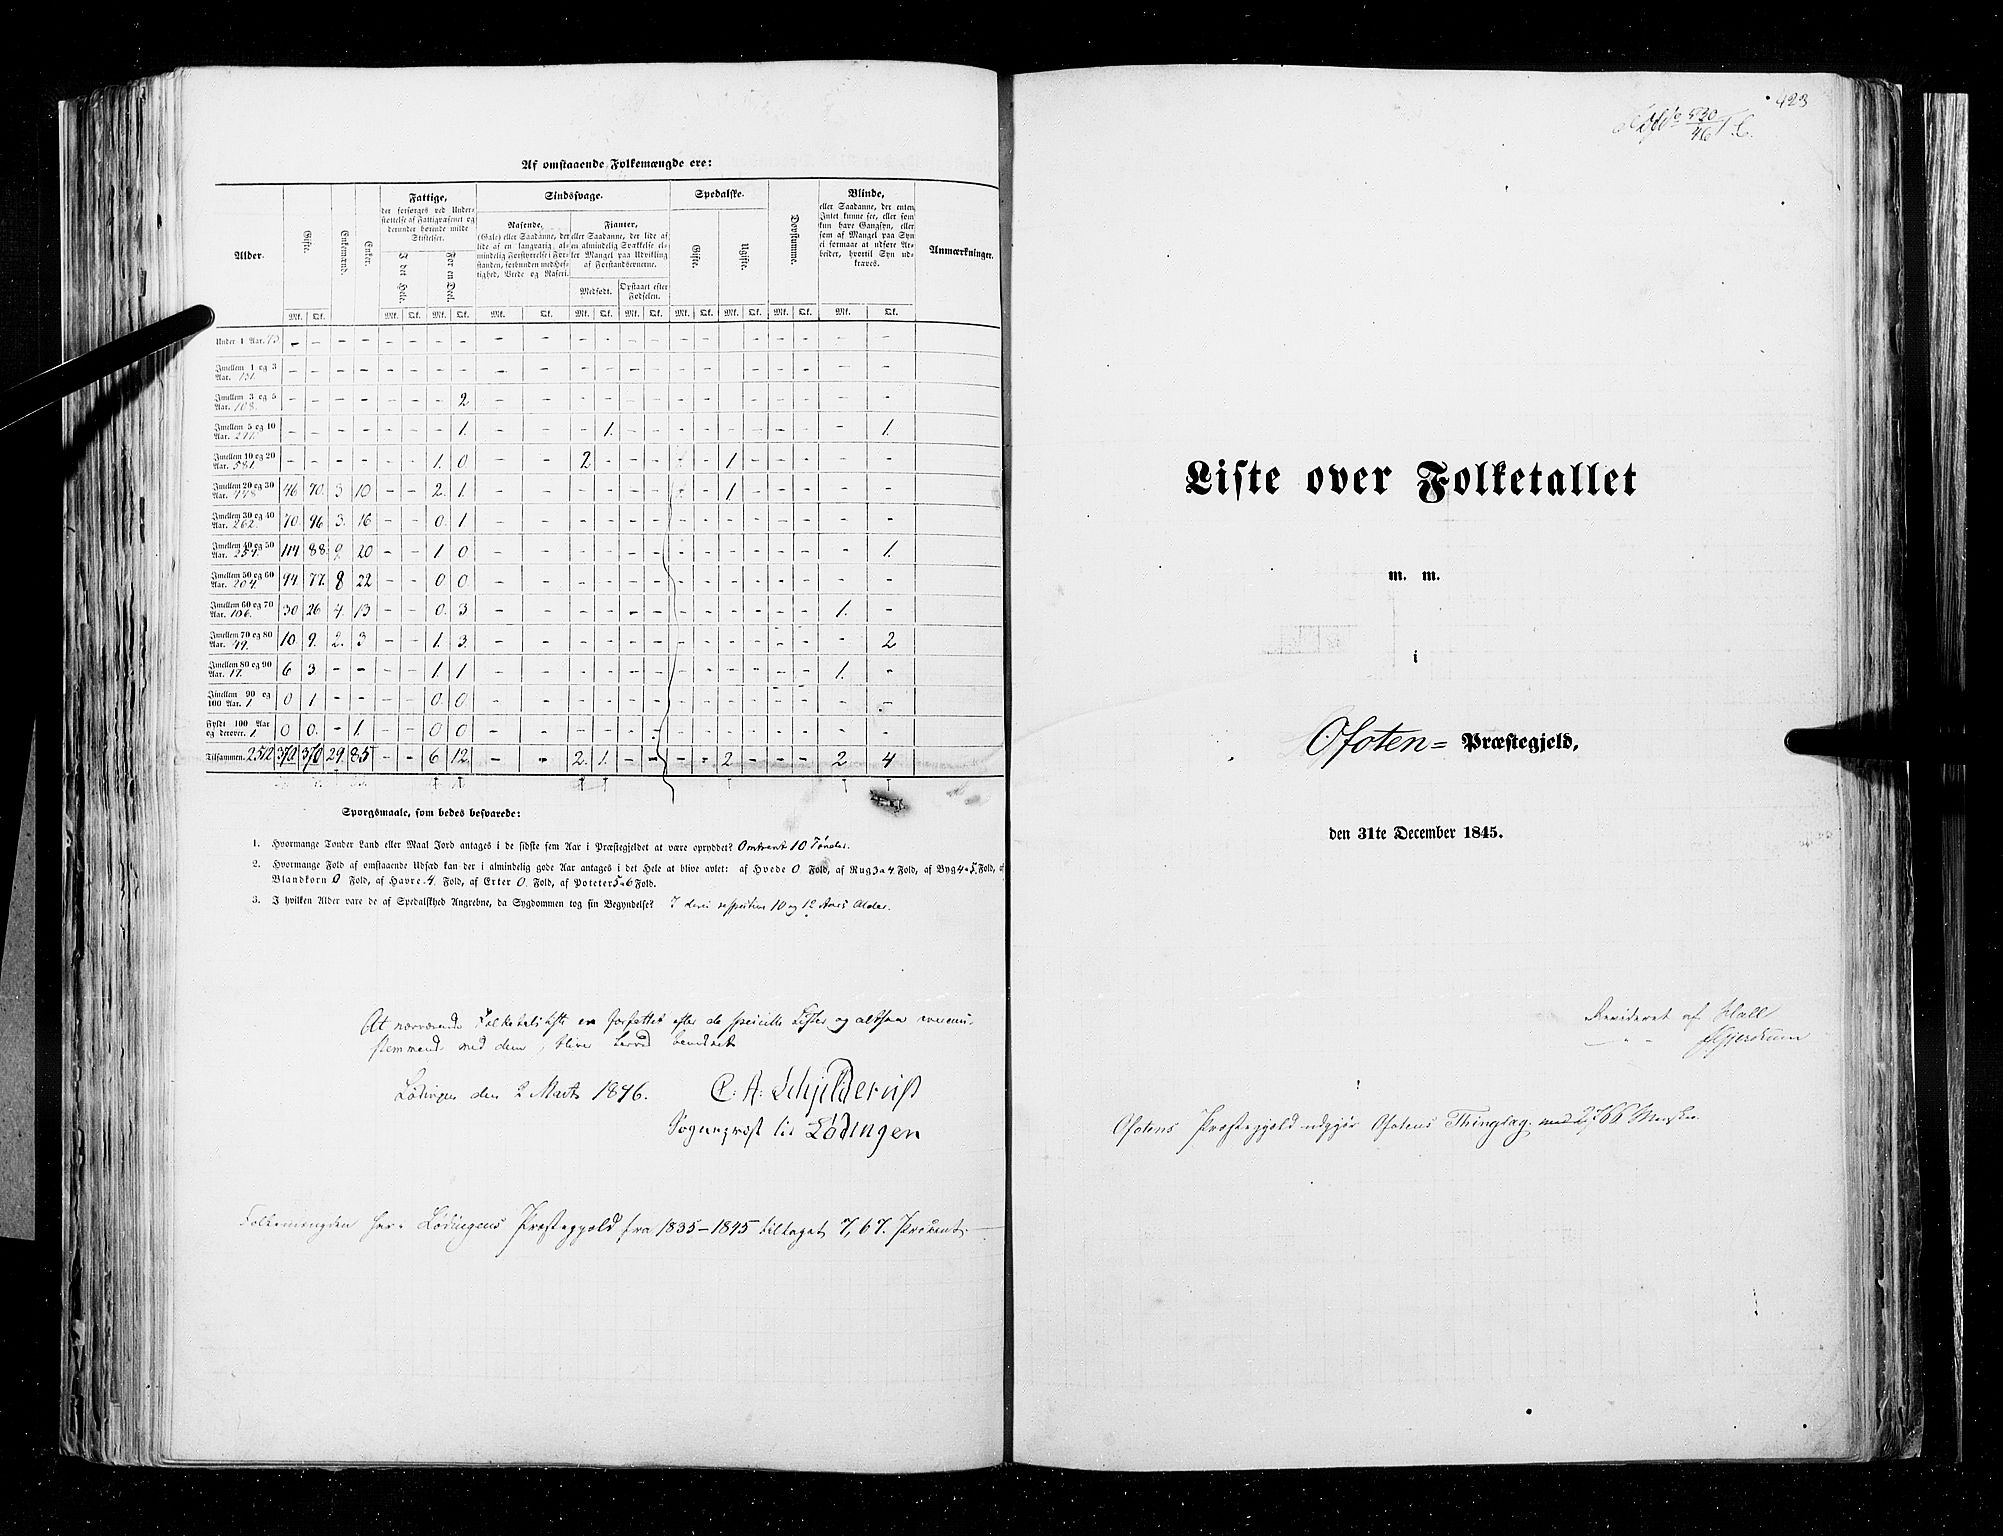 Af omstaaende Folkemængde ere:
Alder. Gifte. Enkemænd. Enker. Fattige, Sindssvage. Spedalske. Døvstumme. Blinde, Anmærkninger.
der forsørges ved Under-
støttelse af Fattigvæsenet og
derunder hørende milde
Stiftelser.
I det Hele. For en Deel.
Rasende,
(Gale) eller Saadanne, der
lide af en langvarig al-
mindelig Forstyrrelse i For-
standen, forbunden med Hef-
tighed, Vrede og Raseri.
Fjanter,
eller Saadanne, der lide af
en almindelig Svækkelse el-
ler Mangel paa Udvikling
af Forstandsevnerne.
Medfødt. Opstaaet efter Fødselen.
Gifte. Ugifte.
eller Saadanne, der enten
Intet kunne see, eller som
kun have Gangsyn, eller
som af Mangel paa Syn
ei formaae at udføre Ar-
beider, hvortil Syn ud-
kræves.
Mk. Qk. Mk. Qk. Mk. Qk. Mk. Qk. Mk. Qk. Mk. Qk. Mk. Qk. Mk. Qk. Mk. Qk. Mk. Qk.
Under 1 Aar. - - - - - - - - - - - - - - - - - - - - - -
Imellem 1 og 3 Aar. 131. - - - - - - - - - - - - - - - - - - - - - -
Imellem 3 og 5 Aar. 108. - - - - - - - 2 - - - - - - - - - - - - - -
Imellem 5 og 10 Aar. 277. - - - - - - - 1. - - - 1. - - - - - - - - - 1.
Imellem 10 og 20 Aar. 581. - - - - - - 1. 0 - - 2 - - - - 1 - - - - -
Imellem 20 og 30 Aar. 448. 46 70. 3 10 - - 2. 1. - - - - - - - - 1 - - - - -
Imellem 30 og 40 Aar. 262. 70. 96 3. 16 - - 0. 1 - - - - - - - - - - - - - -
Imellem 40 og 50 Aar. 257. 114 88. 9. 20 - - 1. 0 - - - - - - - - - - - - - 1.
Imellem 50 og 60 Aar. 204. 94 77. 8 22 - - 0. 0 - - - - - - - - - - - - - -
Imellem 60 og 70 Aar. 106. 30 26 4. 13 - - 0. 3 - - - - - - - - - - - - 1. -
Imellem 70 og 80 Aar. 49. 10 9. 2. 3 - - 1. 3. - - - - - - - - - - - - - 2
Imellem 80 og 90 Aar. 17. 6 3 - - - - 1. 1 - - - - - - - - - - - - 1. -
Imellem 90 og 100 Aar. 1 0 1 - - - - 0. 0 - - - - - - - - - - - - - -
Fyldt 100 Aar og derover. 1 0 0. - 1. - - 0 0 - - - - - - - - - - - - - -
Tilsammen. 2512 370 370 29. 85 - - 6 12. - - 2. 1. - - - - 2 - - - 2 4
Spørgsmaale, som bedes besvarede:
1. Hvormange Tønder Land eller Maal Jord antages i de sidste fem Aar i Præstegjeldet at være opryddet? Omtrent 10 Tønder.
2. Hvormange Fold af omstaaende Udsæd kan der i almindelig gode Aar antages i det Hele at blive avlet: af Hvede 0 Fold, af Rug 3 a 4 Fold, af Byg 4 a 5. Fold, af
Blandkorn 0 Fold, af Havre 4. Fold, af Erter 0. Fold, af Poteter 5 a 6 Fold.
3. I hvilken Alder vare de af Spedalskhed Angrebne, da Sygdommen tog sin Begyndelse? I deres respective 10 og 12 Aars Alder.
At nærværende Folketalsliste er forfattet efter de specielle Lister og altsaa overeens-
stemmende med dem, bliver herved bevidnet
Lødingen den 2 Marts 1846. C. A. Schjelderup
Sogneprest til Lødingen
Folkemængden har i Lødingens Præstegjeld fra 1835-1845 tiltaget 7,67. Procent.
423
530
46
Liste over Folketallet
m. m.
i
Ofoten= Præstegjeld,
den 31te December 1845.
Revideret af Hall
" " Gjerdrum
Ofotens Præstegjeld udgjør Ofotens Thinglag. med 2,766 Mennesker